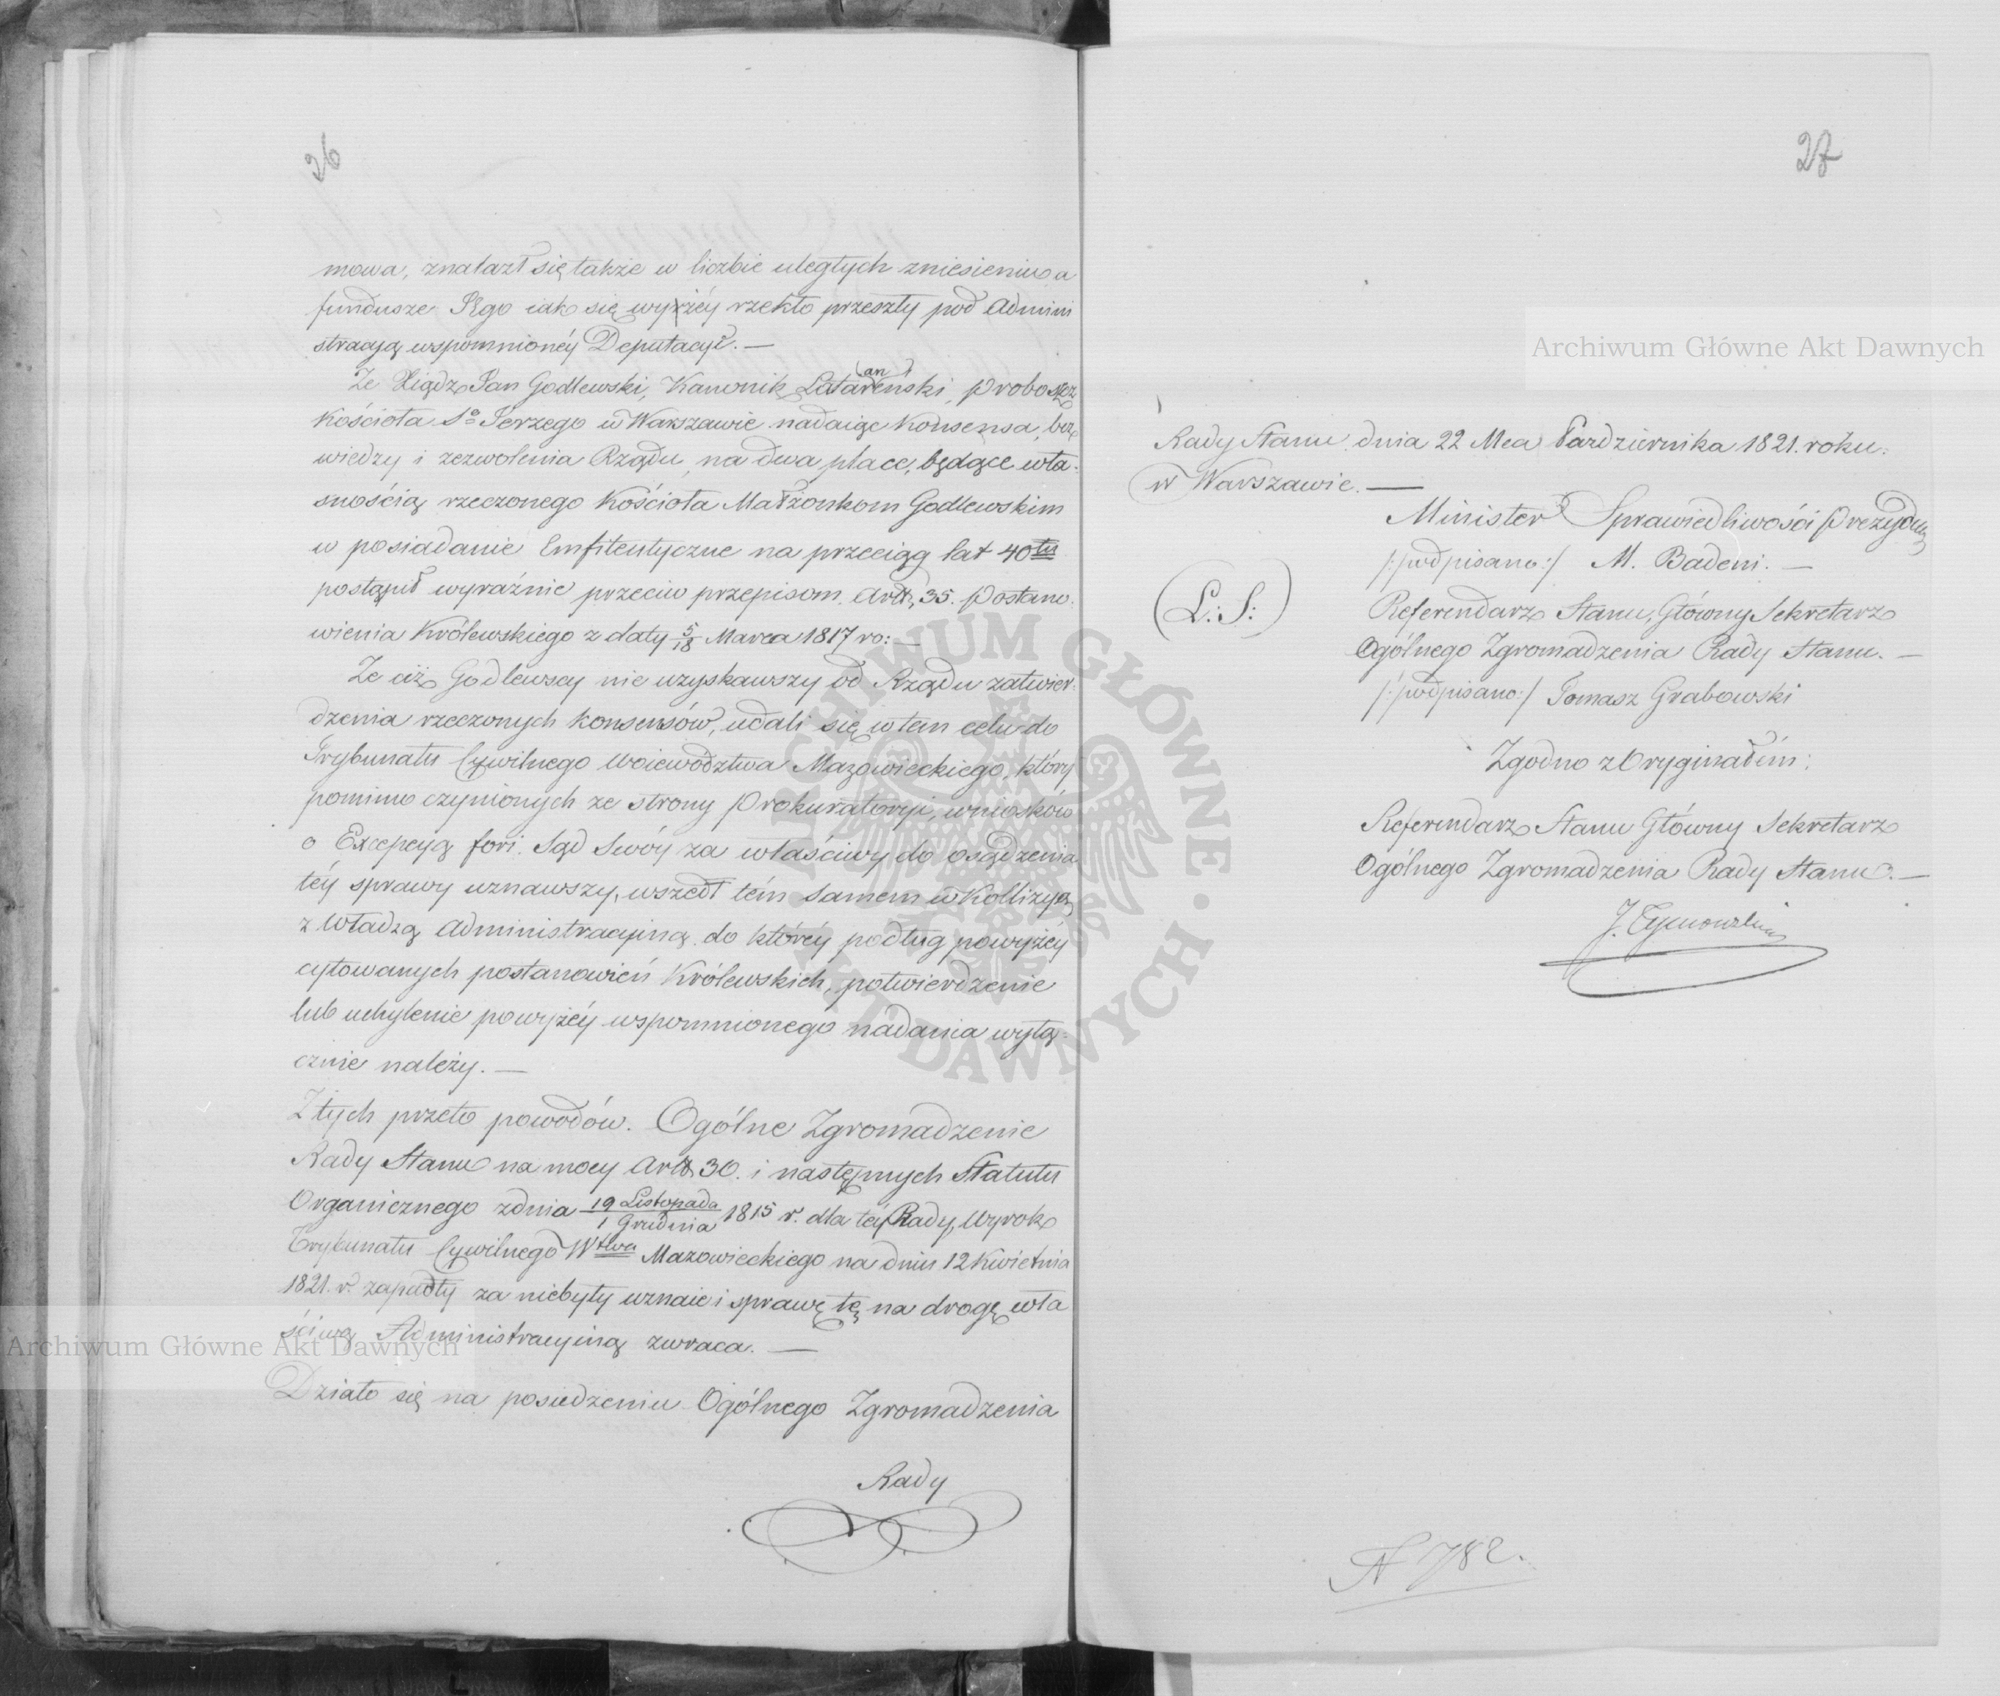 26
mowa, znalazł się także w liczbie uległych zniesieniu a
fundusze Jego iak się wyżéy rzekło przeszły pod Admini
stracyą wspomnionéy Deputacyi. —
Że Xiądz Jan Godlewski, Kanonik Lataraneński, Proboszcz
Kościoła Sgo Jerzego w Warszawie nadaiąc Konsensa, bez
wiedzy i zezwolenia Rządu, na dwa place, będące wła-
snością rzeczonego Kościoła Małżonkom Godlewskim
w posiadanie Emfiteutyczne na przeciąg lat 40tu
postąpił wyraźnie przeciw przepisom Artt. 35. Postano-
wienia Królewskiego z daty 5/18 Marca 1817 ro: —
Że ciż Godlewscy nie uzyskawszy od Rządu zatwier-
dzenia rzeczonych Konsensów, udali się w tem celu do
Trybunału Cywilnego Woiewództwa Mazowieckiego, który
pomimo czynionych ze strony Prokuratoryi, wniosków
o Excepcyą fori. Sąd Swóy za właściwy do osądzenia
téy sprawy uznawszy, wszedł tém samem w Kollizyą
z Władzą Administracyiną do któréy podług powyżéy
cytowanych postanowień Królewskich, potwierdzenie
lub uchylenie powyżéy wspomnionego nadania wyłą-
cznie należy. —
Z tych przeto powodów. Ogólne Zgromadzenie
Rady Stanu na mocy Artt 30. i następnych Statutu
Organicznego z dnia 19 Listopada / 1 Grudnia 1815 r. dla téy Rady, Wyrok
Trybunału Cywilnego Wtwa Mazowieckiego na dniu 12 Kwietnia
1821. r. zapadły za niebyły uznaie i sprawę tę na drogę wła
ściwą Administracyiną zwraca. —
Działo się na posiedzeniu Ogólnego Zgromadzenia
Rady
27
Rady Stanu dnia 22 Mca Pazdziernika 1821. roku.
w Warszawie. —
Minister Sprawiedliwości Prezydu
/:podpisano:/ M. Badeni. —
(L: S:)
Referendarz Stanu, Główny Sekretarz
Ogólnego Zgromadzenia Rady Stanu. —
/:podpisano:/ Tomasz Grabowski
Zgodno z Oryginałem:
Referendarz Stanu Główny Sekretarz
Ogólnego Zgromadzenia Rady Stanu. —
J. Tymowski
N 782.
Archiwum Główne Akt Dawnych
Archiwum Główne Akt Dawnych
ARCHIWUM GŁÓWNE AKT DAWNYCH